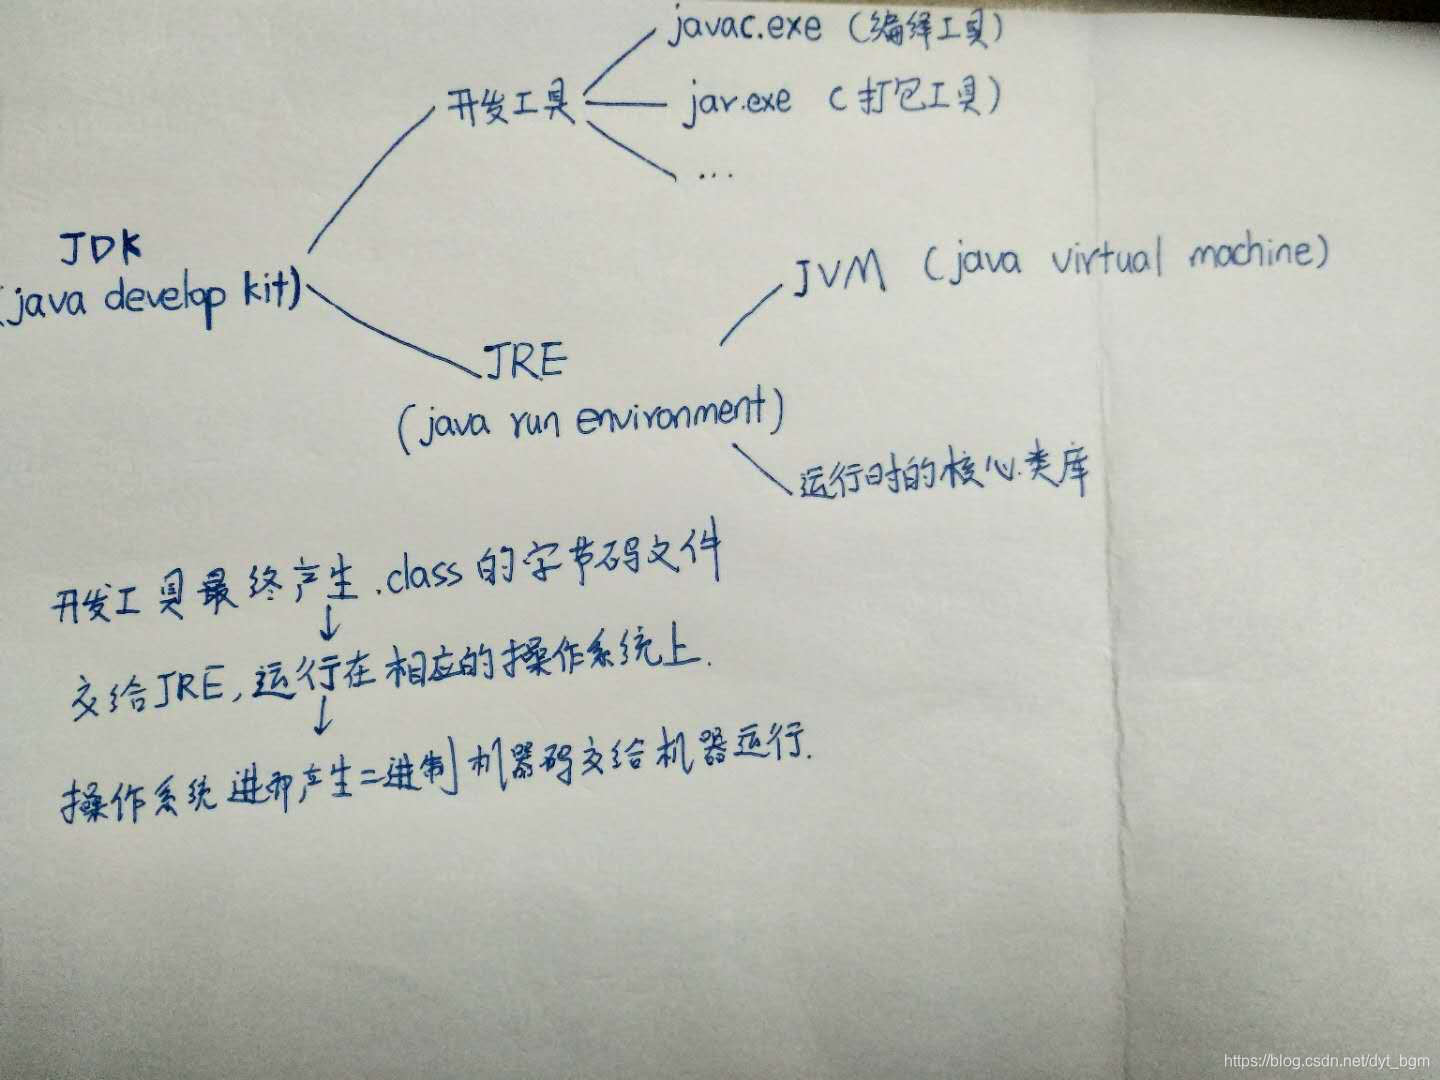 javac.exe (编译工具)
开发工具
jar.exe (打包工具)
...
JDK
(java develop kit)
JVM (java virtual machine)
JRE
(java run environment)
运行时的核心类库
开发工具最终产生.class的字节码文件
↓
交给JRE,运行在相应的操作系统上.
↓
操作系统进而产生二进制机器码交给机器运行.
https://blog.csdn.net/dyt_bgm